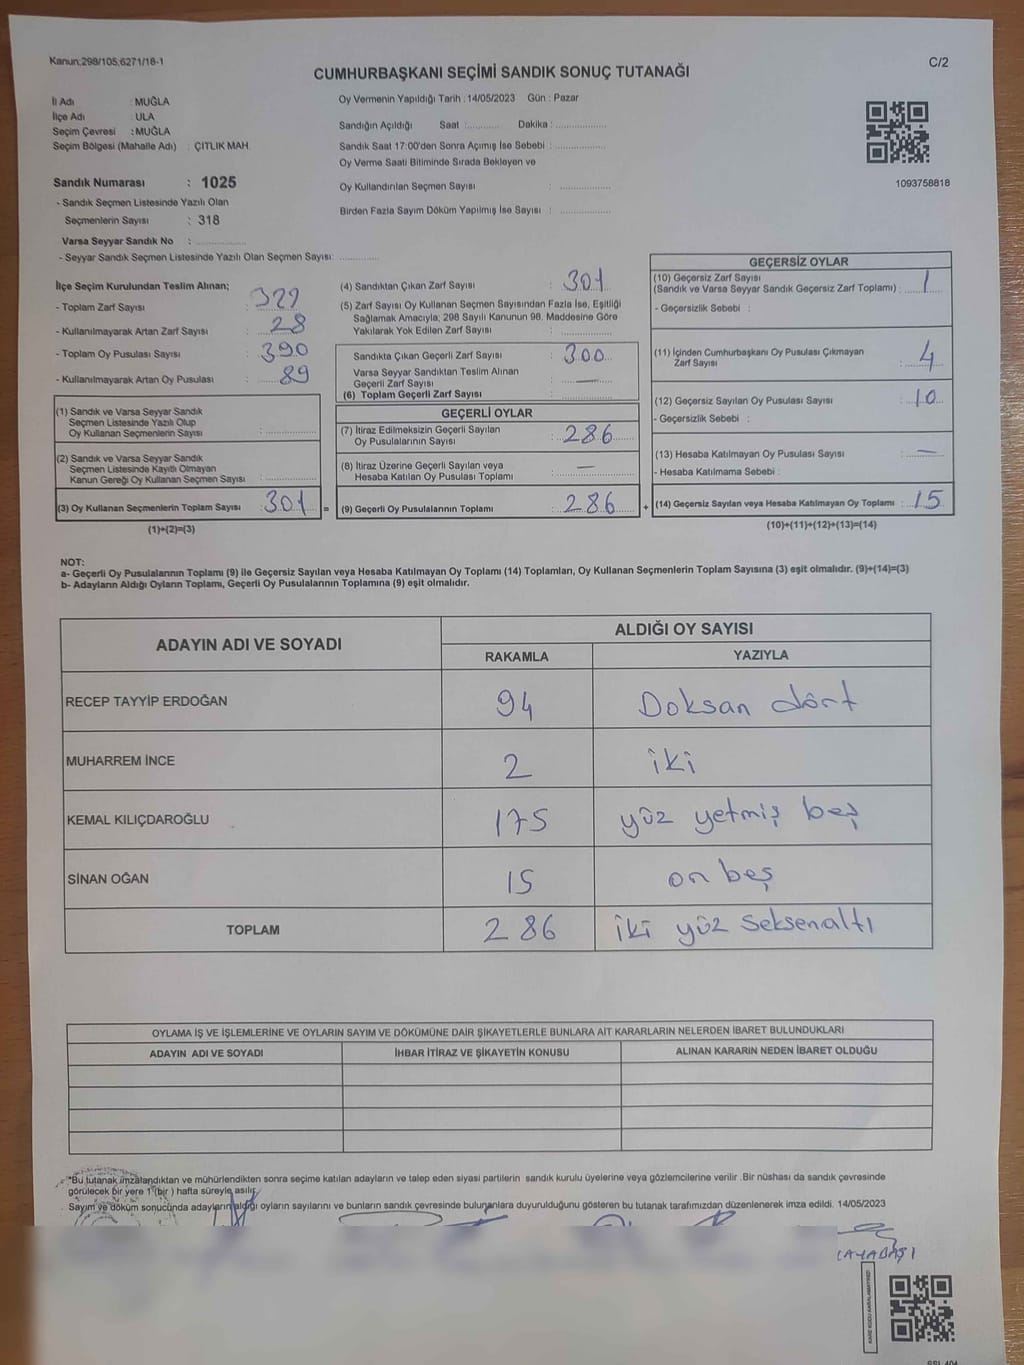 Kanun;298/105,6271/18-1
C/2
CUMHURBAŞKANI SEÇİMİ SANDIK SONUÇ TUTANAĞI
İl Adı : MUĞLA
İlçe Adı : ULA
Seçim Çevresi : MUĞLA
Seçim Bölgesi (Mahalle Adı) : ÇITLIK MAH.
Sandık Numarası : 1025
- Sandık Seçmen Listesinde Yazılı Olan
Seçmenlerin Sayısı : 318
Varsa Seyyar Sandık No : ..............
- Seyyar Sandık Seçmen Listesinde Yazılı Olan Seçmen Sayısı: ............
Oy Vermenin Yapıldığı Tarih : 14/05/2023 Gün : Pazar
Sandığın Açıldığı Saat :.......... Dakika : ................
Sandık Saat 17:00'den Sonra Açımış İse Sebebi : ................
Oy Verme Saati Bitiminde Sırada Bekleyen ve
Oy Kullandırılan Seçmen Sayısı : ................
Birden Fazla Sayım Döküm Yapılmış İse Sayısı : ................
1093758818
İlçe Seçim Kurulundan Teslim Alınan;
- Toplam Zarf Sayısı : 329
- Kullanılmayarak Artan Zarf Sayısı : 28
- Toplam Oy Pusulası Sayısı : 390
- Kullanılmayarak Artan Oy Pusulası : 89
(1) Sandık ve Varsa Seyyar Sandık
Seçmen Listesinde Yazılı Olup
Oy Kullanan Seçmenlerin Sayısı : ................
(2) Sandık ve Varsa Seyyar Sandık
Seçmen Listesinde Kayıtlı Olmayan
Kanun Gereği Oy Kullanan Seçmen Sayısı : ................
(3) Oy Kullanan Seçmenlerin Toplam Sayısı : 301 =
(1)+(2)=(3)
(4) Sandıktan Çıkan Zarf Sayısı : 301
(5) Zarf Sayısı Oy Kullanan Seçmen Sayısından Fazla İse, Eşitliği
Sağlamak Amacıyla, 298 Sayılı Kanunun 98. Maddesine Göre
Yakılarak Yok Edilen Zarf Sayısı : ................
Sandıkta Çıkan Geçerli Zarf Sayısı : 300
Varsa Seyyar Sandıktan Teslim Alınan
Geçerli Zarf Sayısı : —
(6) Toplam Geçerli Zarf Sayısı : ................
GEÇERLİ OYLAR
(7) İtiraz Edilmeksizin Geçerli Sayılan
Oy Pusulalarının Sayısı : 286
(8) İtiraz Üzerine Geçerli Sayılan veya
Hesaba Katılan Oy Pusulası Toplamı : —
(9) Geçerli Oy Pusulalarının Toplamı : 286 +
GEÇERSİZ OYLAR
(10) Geçersiz Zarf Sayısı
(Sandık ve Varsa Seyyar Sandık Geçersiz Zarf Toplamı) : 1
- Geçersizlik Sebebi :
(11) İçinden Cumhurbaşkanı Oy Pusulası Çıkmayan
Zarf Sayısı : 4
(12) Geçersiz Sayılan Oy Pusulası Sayısı : 10
- Geçersizlik Sebebi :
(13) Hesaba Katılmayan Oy Pusulası Sayısı : —
- Hesaba Katılmama Sebebi :
(14) Geçersiz Sayılan veya Hesaba Katılmayan Oy Toplamı : 15
(10)+(11)+(12)+(13)=(14)
NOT:
a- Geçerli Oy Pusulalarının Toplamı (9) ile Geçersiz Sayılan veya Hesaba Katılmayan Oy Toplamı (14) Toplamları, Oy Kullanan Seçmenlerin Toplam Sayısına (3) eşit olmalıdır. (9)+(14)=(3)
b- Adayların Aldığı Oyların Toplamı, Geçerli Oy Pusulalarının Toplamına (9) eşit olmalıdır.
ADAYIN ADI VE SOYADI ALDIĞI OY SAYISI
RAKAMLA YAZIYLA
RECEP TAYYİP ERDOĞAN 94 Doksan dört
MUHARREM İNCE 2 iki
KEMAL KILIÇDAROĞLU 175 yüz yetmiş beş
SİNAN OĞAN 15 on beş
TOPLAM 286 iki yüz seksenaltı
OYLAMA İŞ VE İŞLEMLERİNE VE OYLARIN SAYIM VE DÖKÜMÜNE DAİR ŞİKAYETLERLE BUNLARA AİT KARARLARIN NELERDEN İBARET BULUNDUKLARI
ADAYIN ADI VE SOYADI İHBAR İTİRAZ VE ŞİKAYETİN KONUSU ALINAN KARARIN NEDEN İBARET OLDUĞU
*Bu tutanak imzalandıktan ve mühürlendikten sonra seçime katılan adayların ve talep eden siyasi partilerin sandık kurulu üyelerine veya gözlemcilerine verilir .Bir nüshası da sandık çevresinde
görülecek bir yere 1 (bir ) hafta süreyle asılır.
Sayım ve döküm sonucunda adayların aldığı oyların sayılarını ve bunların sandık çevresinde bulunanlara duyurulduğunu gösteren bu tutanak tarafımızdan düzenlenerek imza edildi. 14/05/2023
KARE KODU KARALAMAYINIZ!